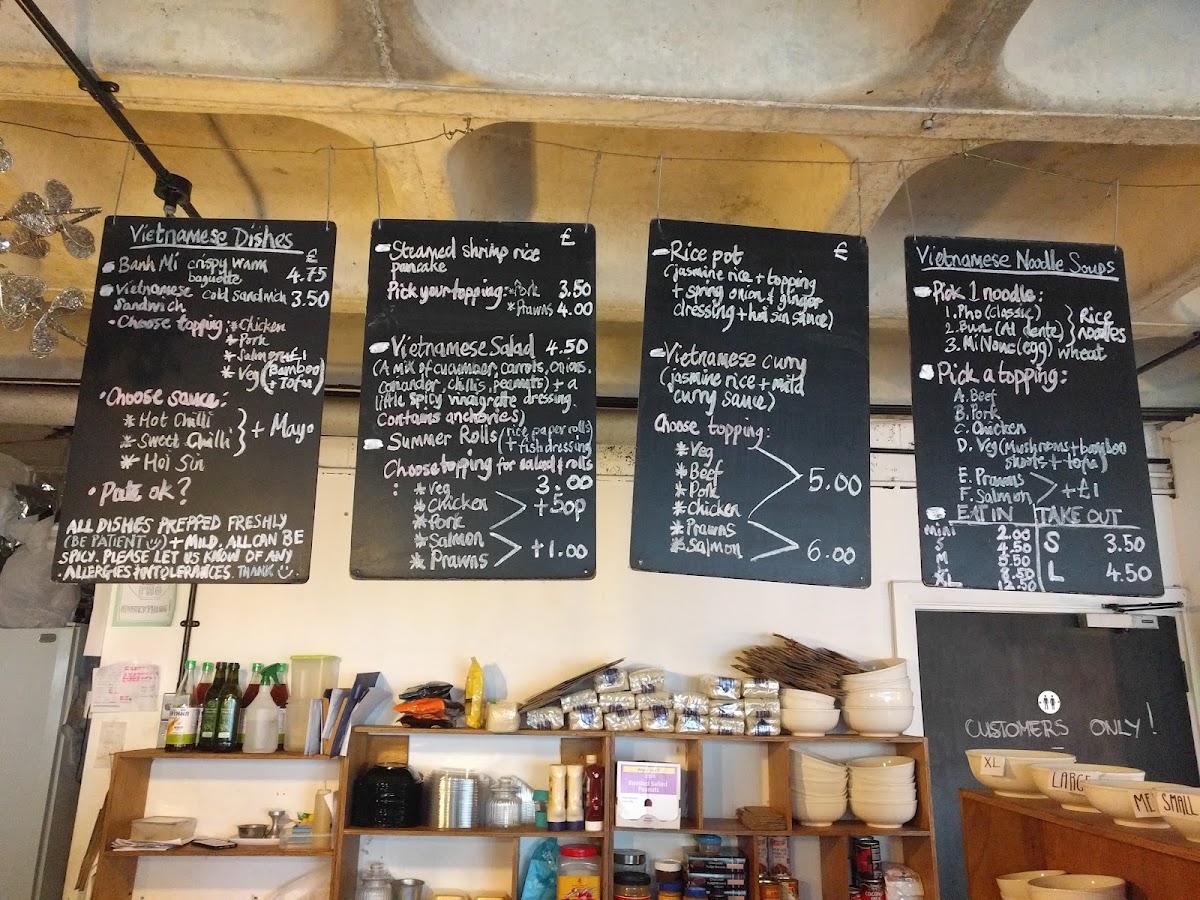 Vietnamese Dishes
£
Banh Mi crispy warm
baguette 4.75
Vietnamese cold sandwich 3.50
Sandwich
• Choose topping: * Chicken
* Pork
* Salmon +£1
* Veg (Bamboo
+ Tofu)
• Choose sauce:
* Hot Chilli
* Sweet Chilli } + Mayo
* Hoi Sin
• Pate ok?
ALL DISHES PREPPED FRESHLY
(BE PATIENT) + MILD. ALL CAN BE
SPICY. PLEASE LET US KNOW OF ANY
ALLERGIES + INTOLERANCES. THANK
£
Steamed shrimp rice
pancake
Pick your topping: * Pork 3.50
* Prawns 4.00
Vietnamese Salad 4.50
(A mix of cucumber, carrots, onions,
coriander, chillis, peanuts) + a
little spicy vinaigrette dressing.
Contains anchovies)
Summer Rolls (rice paper rolls)
+ fish dressing
Choose topping for salad & rolls
: * Veg 3.00
* Chicken
* Pork +50p
* Salmon
* Prawns +1.00
Rice pot £
(jasmine rice + topping
+ spring onion & ginger
dressing + hoi sin sauce)
Vietnamese curry
(jasmine rice + mild
curry sauce)
Choose topping:
* Veg
* Beef
* Pork 5.00
* Chicken
* Prawns
* Salmon 6.00
Vietnamese Noodle Soups
Pick 1 noodle:
1. Pho (classic)
2. Bun (Al dente) } Rice
noodles
3. Mi Noue (egg) wheat
Pick a topping:
A. Beef
B. Pork
C. Chicken
D. Veg (Mushrooms + bamboo
shoots + tofu)
E. Prawns
F. Salmon +£1
EAT IN TAKE OUT
Mini 2.00
S 4.50 S 3.50
M 5.50
L 8.50 L 4.50
XL 12.50
CUSTOMERS ONLY!
XL
LARGE
ME
SMALL
Roasted Salted
Peanuts